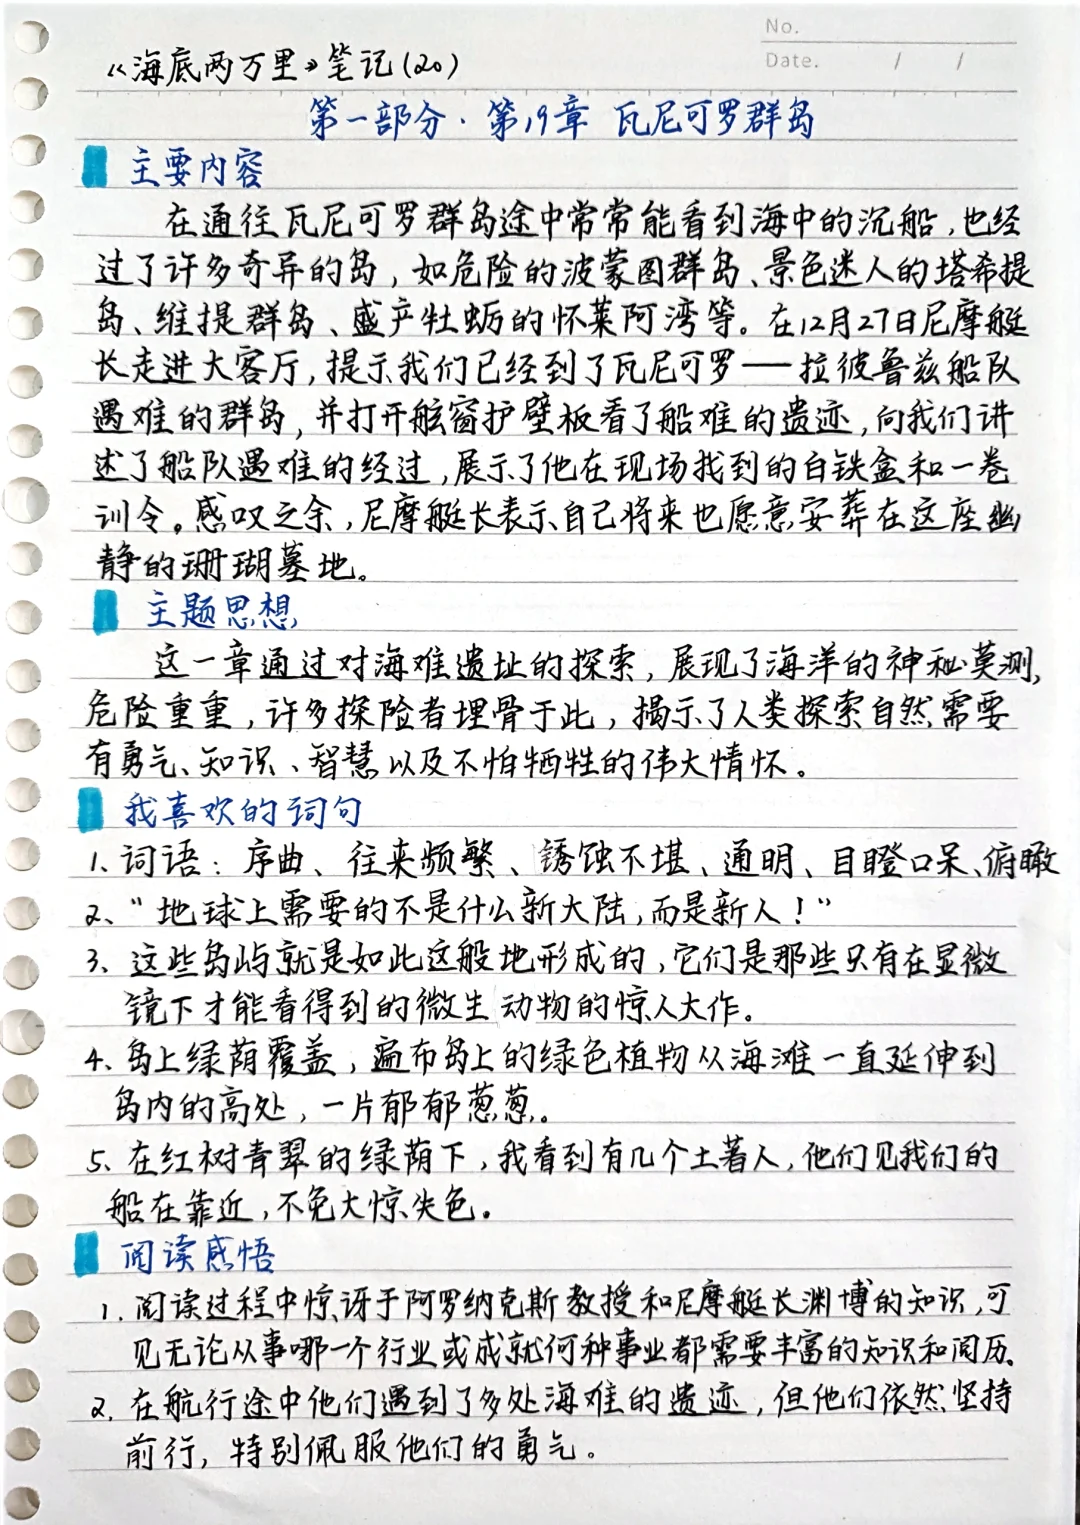 No.
《海底两万里》笔记(20)
Date. / /
第一部分·第19章 瓦尼可罗群岛
主要内容
在通往瓦尼可罗群岛途中常常能看到海中的沉船,也经
过了许多奇异的岛,如危险的波蒙图群岛、景色迷人的塔希提
岛、维提群岛、盛产牡蛎的怀莱阿湾等。在12月27日尼摩艇
长走进大客厅,提示我们已经到了瓦尼可罗——拉彼鲁兹船队
遇难的群岛,并打开舷窗护壁板看了船难的遗迹,向我们讲
述了船队遇难的经过,展示了他在现场找到的白铁盒和一卷
训令。感叹之余,尼摩艇长表示自己将来也愿意安葬在这座幽
静的珊瑚墓地。
主题思想
这一章通过对海难遗址的探索,展现了海洋的神秘莫测,
危险重重,许多探险者埋骨于此,揭示了人类探索自然需要
有勇气、知识、智慧以及不怕牺牲的伟大情怀。
我喜欢的词句
1、词语:序曲、往来频繁、锈蚀不堪、通明、目瞪口呆、俯瞰
2、“地球上需要的不是什么新大陆,而是新人!”
3、这些岛屿就是如此这般地形成的,它们是那些只有在显微
镜下才能看得到的微生动物的惊人大作。
4、岛上绿荫覆盖,遍布岛上的绿色植物从海滩一直延伸到
岛内的高处,一片郁郁葱葱。
5、在红树青翠的绿荫下,我看到有几个土著人,他们见我们的
船在靠近,不免大惊失色。
阅读感悟
1.阅读过程中惊讶于阿罗纳克斯教授和尼摩艇长渊博的知识,可
见无论从事哪一个行业或成就何种事业都需要丰富的知识和阅历。
2.在航行途中他们遇到了多处海难的遗迹,但他们依然坚持
前行,特别佩服他们的勇气。